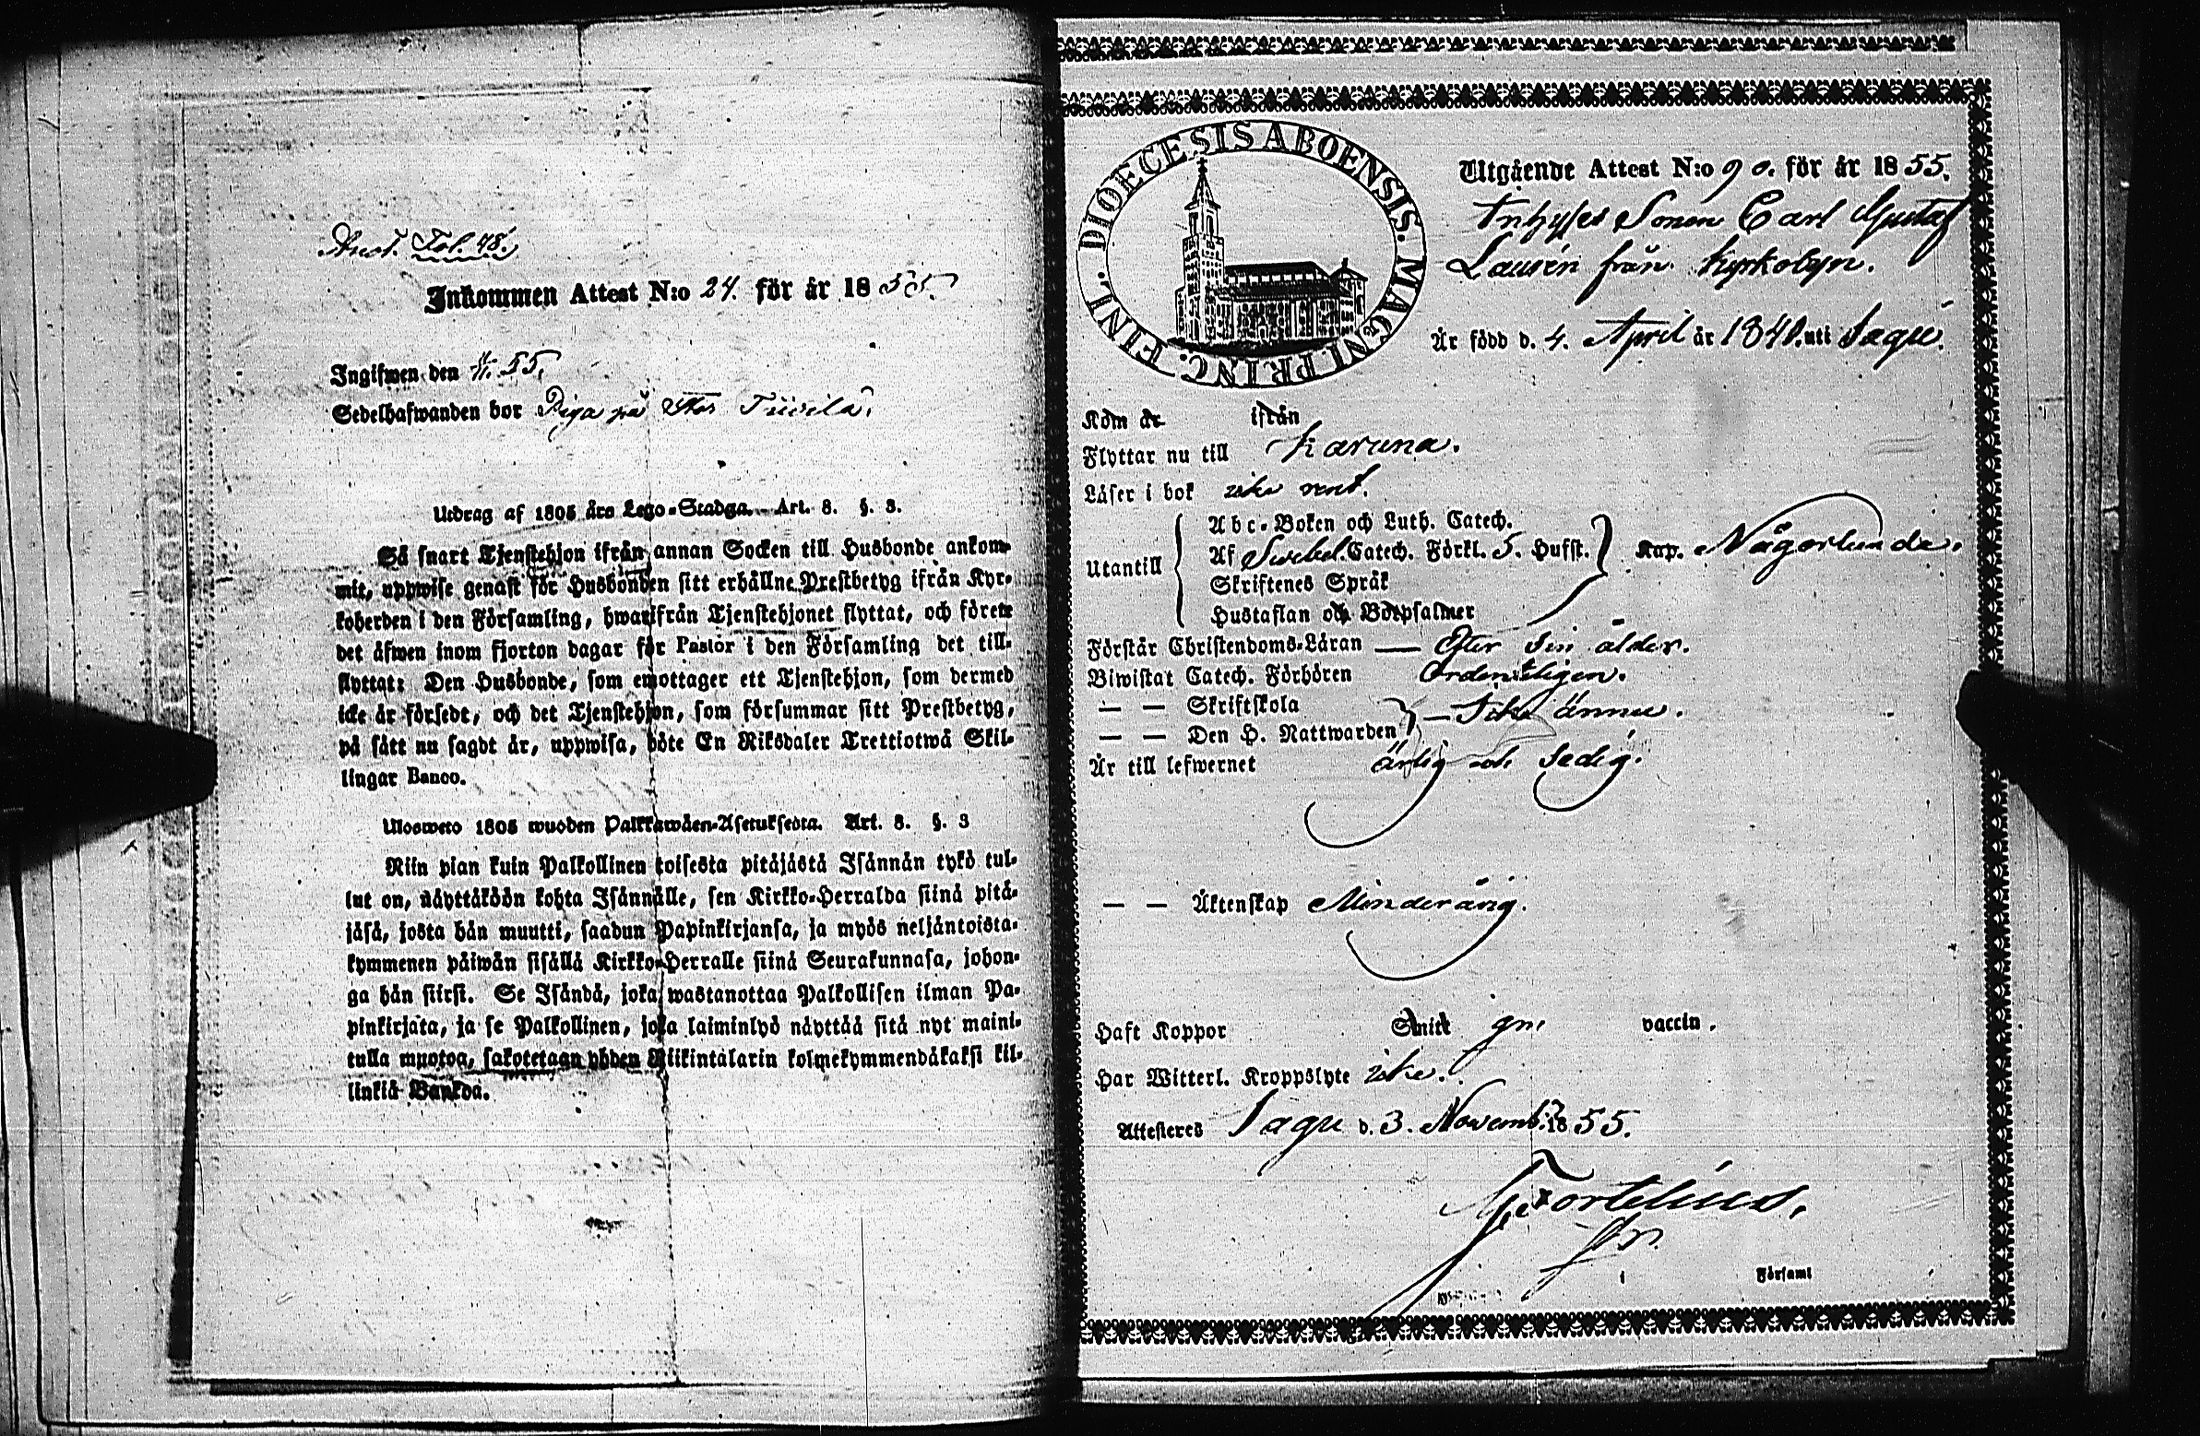 Anot. Fol. 48.
Inkommen Attest N:o 24. för år 1855.
Ingifwen den 4/11 55.
Sedelhafwanden bor Piga på Stor
Utdrag af 1805 års Lego-Stadga. Art. 8. §. 3.
Så snart Tjenstehjon ifrån annan Socken till Husbonde ankom-
mit, uppwise genast för Husbonden sitt erhållne Prestbetyg ifrån Kyr-
koherden i den Församling, hwarifrån Tjenstehjonet flyttat, och förete
det äfwen inom fjorton dagar för Pastor i den Församling det till-
flyttat: Den Husbonde, som emottager ett Tjenstehjon, som dermed
icke är försedt, och det Tjenstehjon, som försummar sitt Prestbetyg,
på sätt nu sagdt är, uppwisa, böte En Riksdaler Trettiotwå Skil-
lingar Banco.
Ulosweto 1805 wuoden Palkkawäen-Asetuksesta. Art. 8. §. 3
Niin pian kuin Palkollinen toisesta pitäjästä Isännän tykö tul-
lut on, näyttäköön kohta Isännälle, sen Kirkko-Herralda siinä pitä-
jäsä, josta hän muutti, saadun Papinkirjansa, ja myös neljäntoista-
kymmenen päiwän sisällä Kirkko-Herralle siinä Seurakunnasa, johon-
ga hän siirsi. Se Isändä, joka wastanottaa Palkollisen ilman Pa-
pinkirjata, ja se Palkollinen, joka laiminlyö näyttää sitä nyt maini-
tulla muotoa, sakotetaan yhden Riikintalarin kolmekymmendäkaksi kil-
linkiä Bankoa.
DIOECESIS ABOENSIS. MAGNI PRINC. FINL.
Utgående Attest N:o 90. för år 1855.
Inhyses Sonen Carl Gustaf
Laurén från Kyrkobyn.
Är född d. 4. April år 1840. uti Sagu.
Kom år ifrån
Flyttar nu till Karuna.
Läser i bok icke rent.
Utantill
Abc-Boken och Luth. Catech.
Af Swebel. Catech. Förkl. 5. Hufst. Kap. Någorlunda.
Skriftenes Språk
Hustaflan och Botpsalmer
Förstår Christendoms-Läran — Efter sin ålder.
Biwistat Catech. Förhören Ordentligen.
— — Skriftskola
— — Den H. Nattwarden — Icke ännu.
Är till lefwernet ärlig och sedig.
— — Äktenskap Minderårig.
Haft Koppor Snitt gn. vaccin.
Har Witterl. Kroppslyte icke.
Attesteres Sagu d. 3. Novemb. 1855.
Fortelius,
i Församl